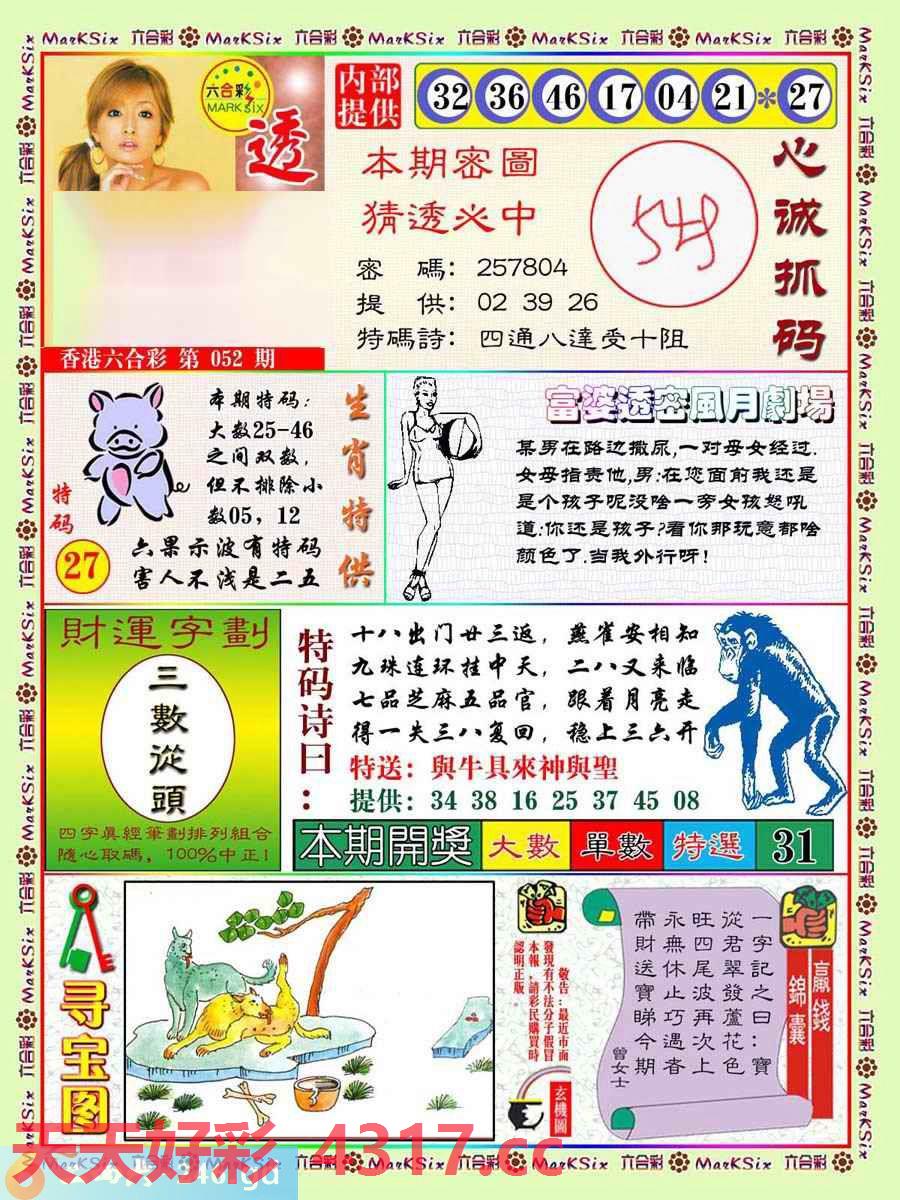 MarKSix 六合彩 MarKSix 六合彩 MarKSix 六合彩 MarKSix 六合彩 MarKSix 六合彩
六合彩
MARK six
透
内部
提供
32 36 46 17 04 21 * 27
本期密圖
猜透必中
密 碼: 257804
提 供: 02 39 26
特碼詩: 四通八達受十阻
549
心诚抓码
香港六合彩 第 052 期
本期特码:
大数25-46
之间双数,
但不排除小
数05, 12
六果示波有特码
害人不浅是二五
特码
27
生肖特供
富婆透密風月劇場
某男在路边撒尿,一对母女经过.
女母指责他,男:在您面前我还是
是个孩子呢没啥一旁女孩怒吼
道:你还是孩子?看你那玩意都啥
颜色了.当我外行呀!
財運字劃
三數從頭
四字真經筆劃排列組合
隨心取碼, 100%中正!
特码诗曰:
十八出门廿三返, 燕雀安相知
九珠连环挂中天, 二八又来临
七品芝麻五品官, 跟着月亮走
得一失三八复回, 稳上三六开
特送: 與牛具來神與聖
提供: 34 38 16 25 37 45 08
本期開獎 大數 單數 特選 31
寻宝图
敬告:最近市面
發現有不法分子假冒
本報,請彩民購買時
認明正版。
玄機圖
贏錢
錦囊
一字記之曰:寶
從君翠發蘆花色
旺四尾波再次上
永無休止巧遇春
帶財送寶睇今期
曾女士
天天好彩 4317.cc
MarKSix 六合彩 MarKSix 六合彩 MarKSix 六合彩 MarKSix 六合彩